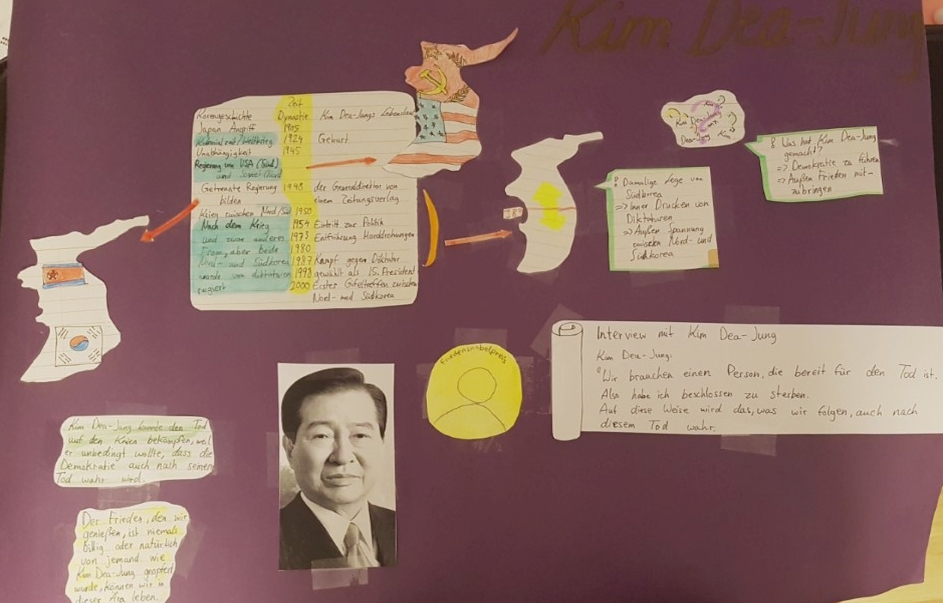 Kim Dea-Jung
Zeit
Koreageschichte Dynastie Kim Dea-Jung: Lebenslauf
Japan Angriff 1905
Kolonialzeit/Weltkrieg 1924 Geburt
Unabhängigkeit 1945
Regierung von USA (Süd)
und Soviet (Nord)
Getrennte Regierung 1948 der Generaldirektor von
bilden einem Zeitungsverlag
Krieg zwischen Nord/Süd 1950
Nach dem Krieg 1954 Eintritt zur Politik
und zwar anderes 1973 Entführung
Form, aber beide 1980
Nord- und Südkorea 1987 Kampf gegen Diktator
wurde von diktatoren 1998 gewählt als 15. President
regiert 2000 Erstes zwischen
Nord- und Südkorea
38
Kim
Kim
Dea-Jung
Kim
8 Was hat Kim Dea-Jung
gemacht?
=> Demokratie zu führen
=> Außen Frieden mit-
zubringen
8 Damalige Lage von
Südkorea
=> Inner Drucken von
Diktaturen
=> Außen Spannung
zwischen Nord- und
Südkorea
Friedensnobelpreis
Interview mit Kim Dea-Jung
Kim Dea-Jung:
"Wir brauchen einen Person, die bereit für den Tod ist.
Also habe ich beschlossen zu sterben.
Auf diese Weise wird das, was wir folgen, auch nach
diesem Tod wahr.
Kim Dea-Jung konnte den Tod
auf den Knien bekämpfen, weil
er unbedingt wollte, dass die
Demokratie auch nach seinen
Tod wahr wird.
Der Frieden, den wir
genießen, ist niemals
billig oder natürlich
von jemand wie
Kim Dea-Jung geopfert
wurde, können wir in
dieser Ära leben.